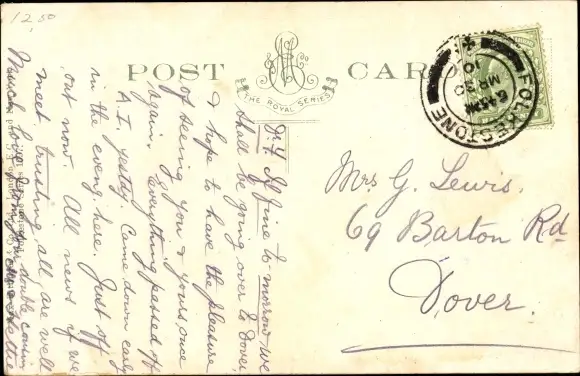 12,50
POST CARD
THE ROYAL SERIES
FOLKESTONE
6.45 AM
MR 30
10
Mrs G. Lewis.
69 Barton Rd
Dover.
If fine to-morrow we
shall be going over to Dover,
& hope to have the pleasure
of seeing you & yours once
again. Everything passed off
A.I. yestly Came down early
in the eveng. here. Just off
out now. All news if we
meet trusting all are well
Much love from your double cousin
Hattie